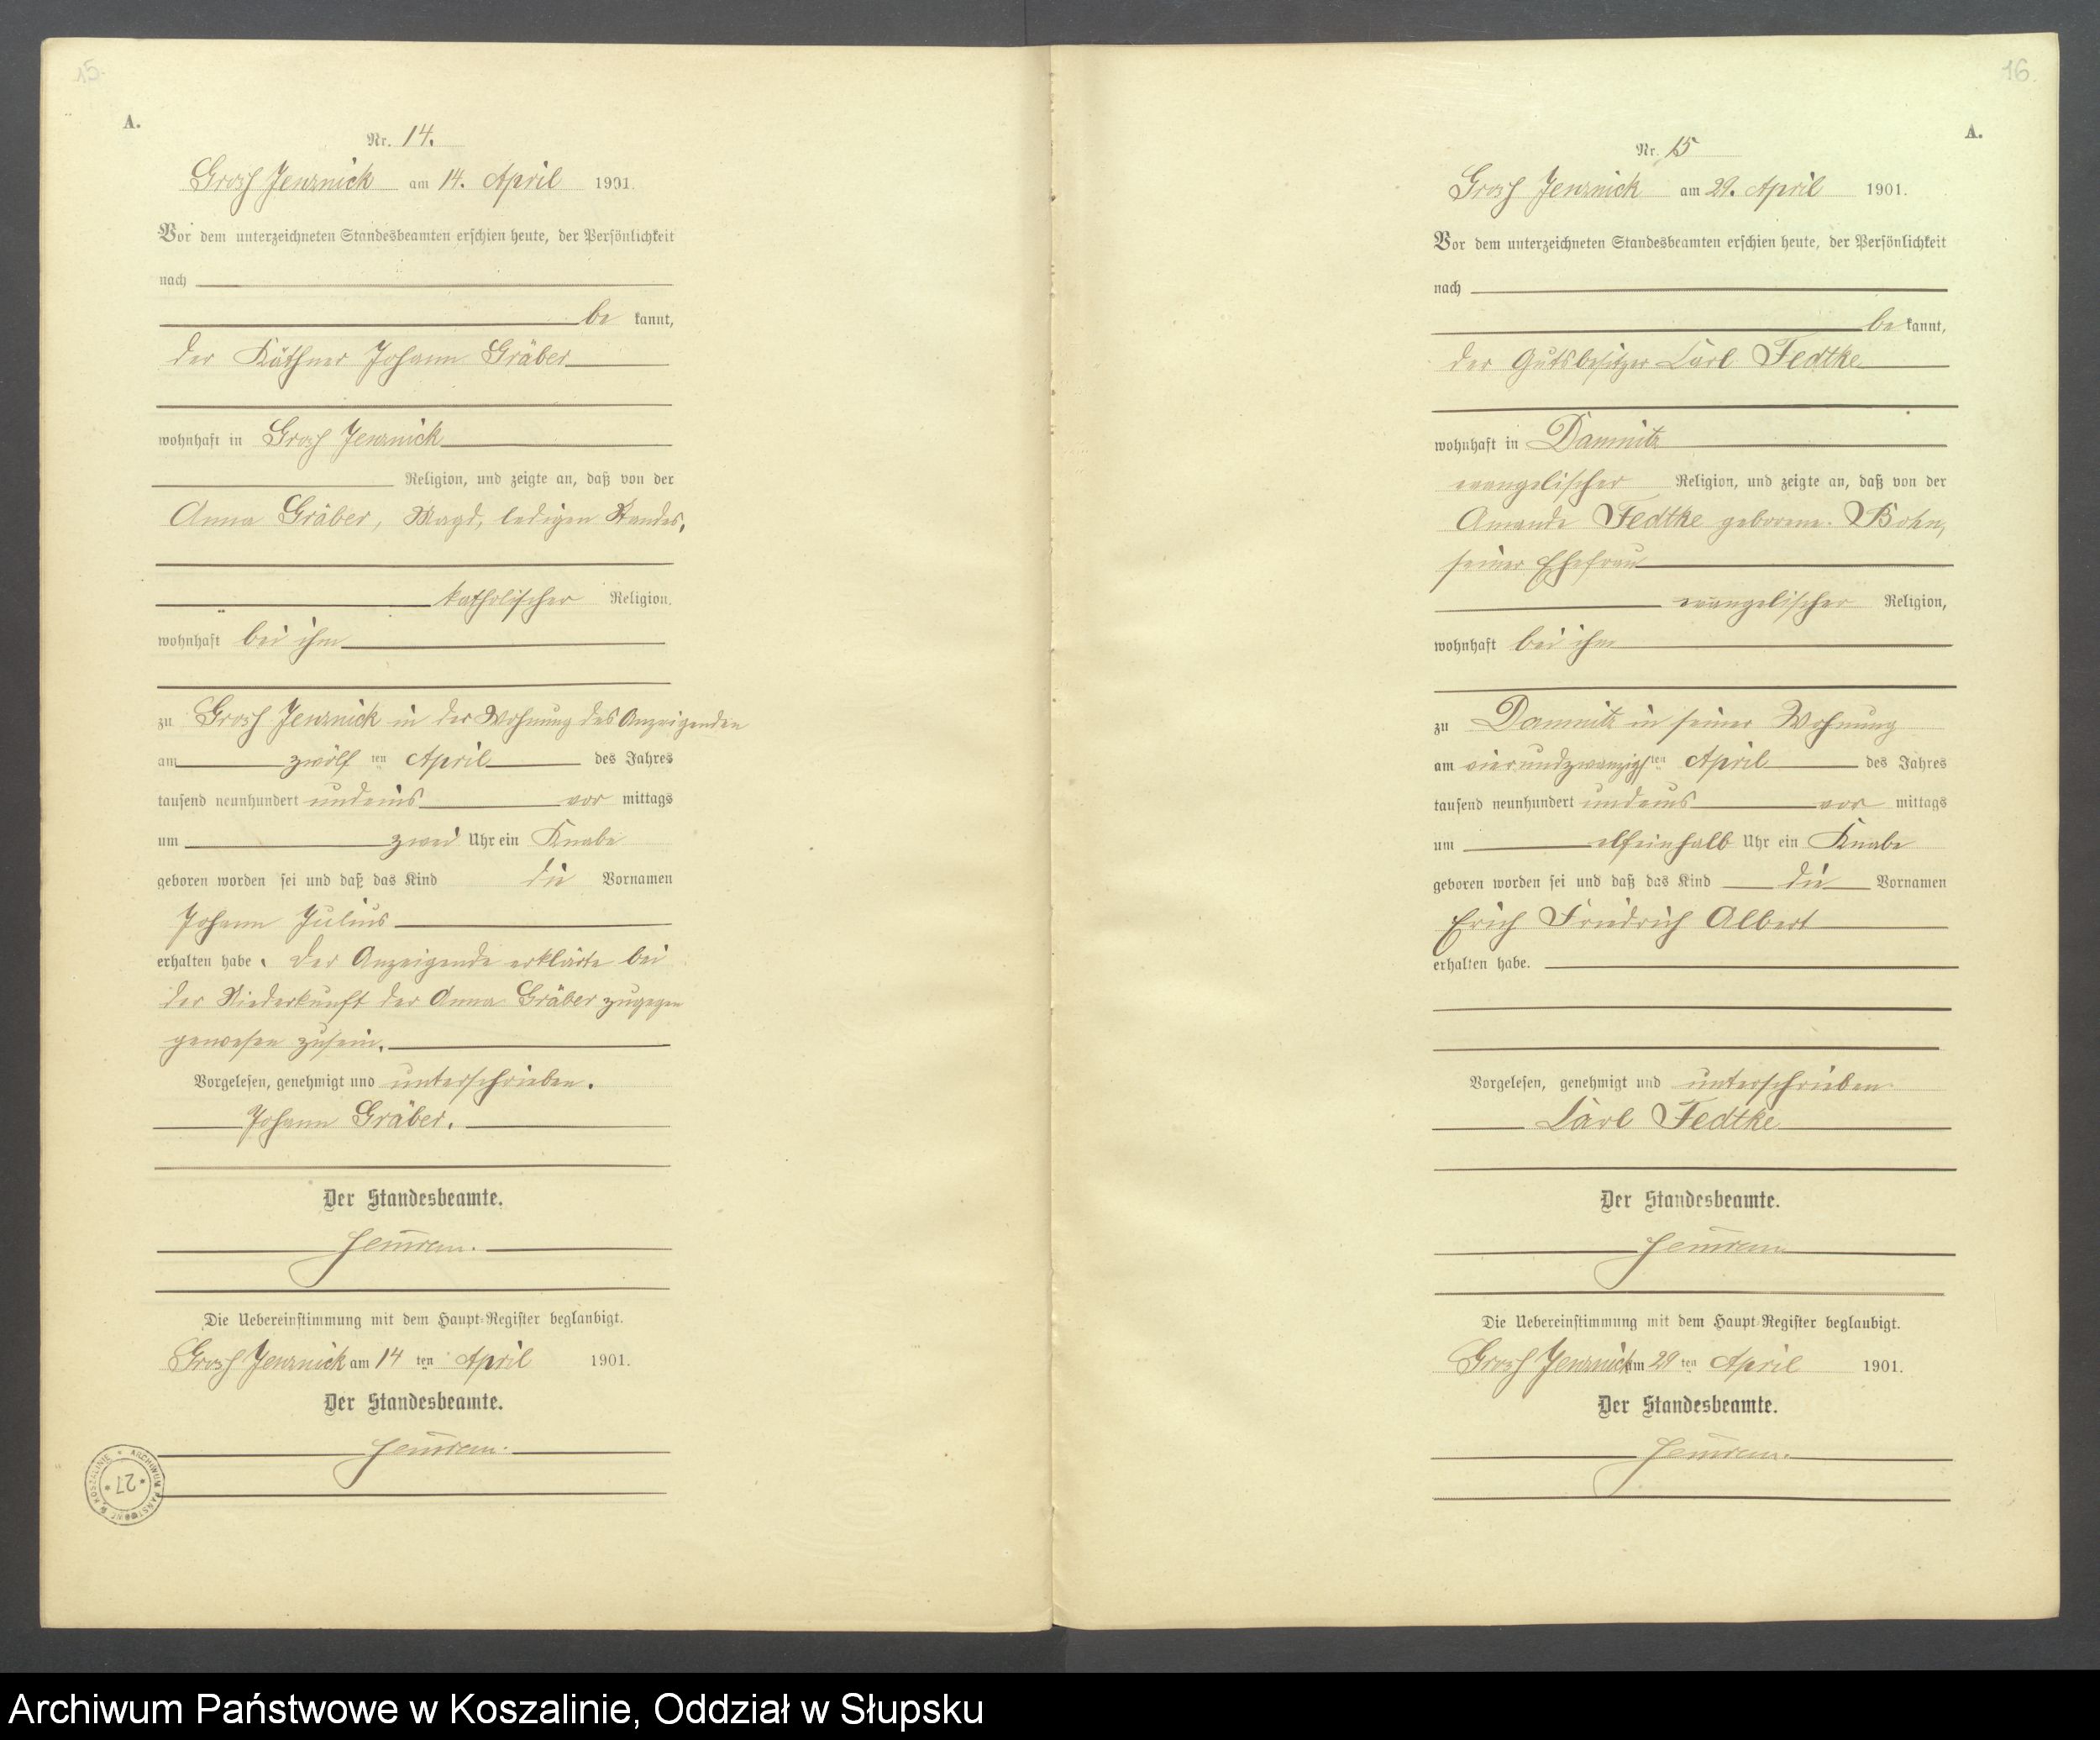 15.
A.
Nr. 14.
Gross Jenznick am 14. April 1901.
Vor dem unterzeichneten Standesbeamten erschien heute, der Persönlichkeit
nach
be kannt,
der Käthner Johann Gräber
wohnhaft in Gross Jenznick
Religion, und zeigte an, daß von der
Anna Gräber, Magd, ledigen Standes,
katholischer Religion.
wohnhaft bei ihm
zu Gross Jenznick in der Wohnung des Anzeigenden
am zwölf ten April des Jahres
tausend neunhundert undeins vor mittags
um zwei Uhr ein Knabe
geboren worden sei und daß das Kind die Vornamen
Johann Julius
erhalten habe. Der Anzeigende erklärte bei
der Niederkunft der Anna Gräber zugegen
gewesen zusein.
Vorgelesen, genehmigt und unterschrieben.
Johann Gräber.
Der Standesbeamte.
Die Uebereinstimmung mit dem Haupt-Register beglaubigt.
Gross Jenznick am 14 ten April 1901.
Der Standesbeamte.
ARCHIWUM PAŃSTWOWE W KOSZALINIE
* 27 *
16.
A.
Nr. 15
Gross Jenznick am 29. April 1901.
Vor dem unterzeichneten Standesbeamten erschien heute, der Persönlichkeit
nach
be kannt,
der Gutsbesitzer Carl Fedtke
wohnhaft in Damnitz
evangelischer Religion, und zeigte an, daß von der
Amande Fedtke geborene Bohn,
seiner Ehefrau
evangelischer Religion,
wohnhaft bei ihm
zu Damnitz in seiner Wohnung
am vierundzwanzigsten April des Jahres
tausend neunhundert undeins vor mittags
um elfeinhalb Uhr ein Knabe
geboren worden sei und daß das Kind die Vornamen
Erich Friedrich Albert
erhalten habe.
Vorgelesen, genehmigt und unterschrieben
Carl Fedtke
Der Standesbeamte.
Die Uebereinstimmung mit dem Haupt-Register beglaubigt.
Gross Jenznick am 29 ten April 1901.
Der Standesbeamte.
Archiwum Państwowe w Koszalinie, Oddział w Słupsku